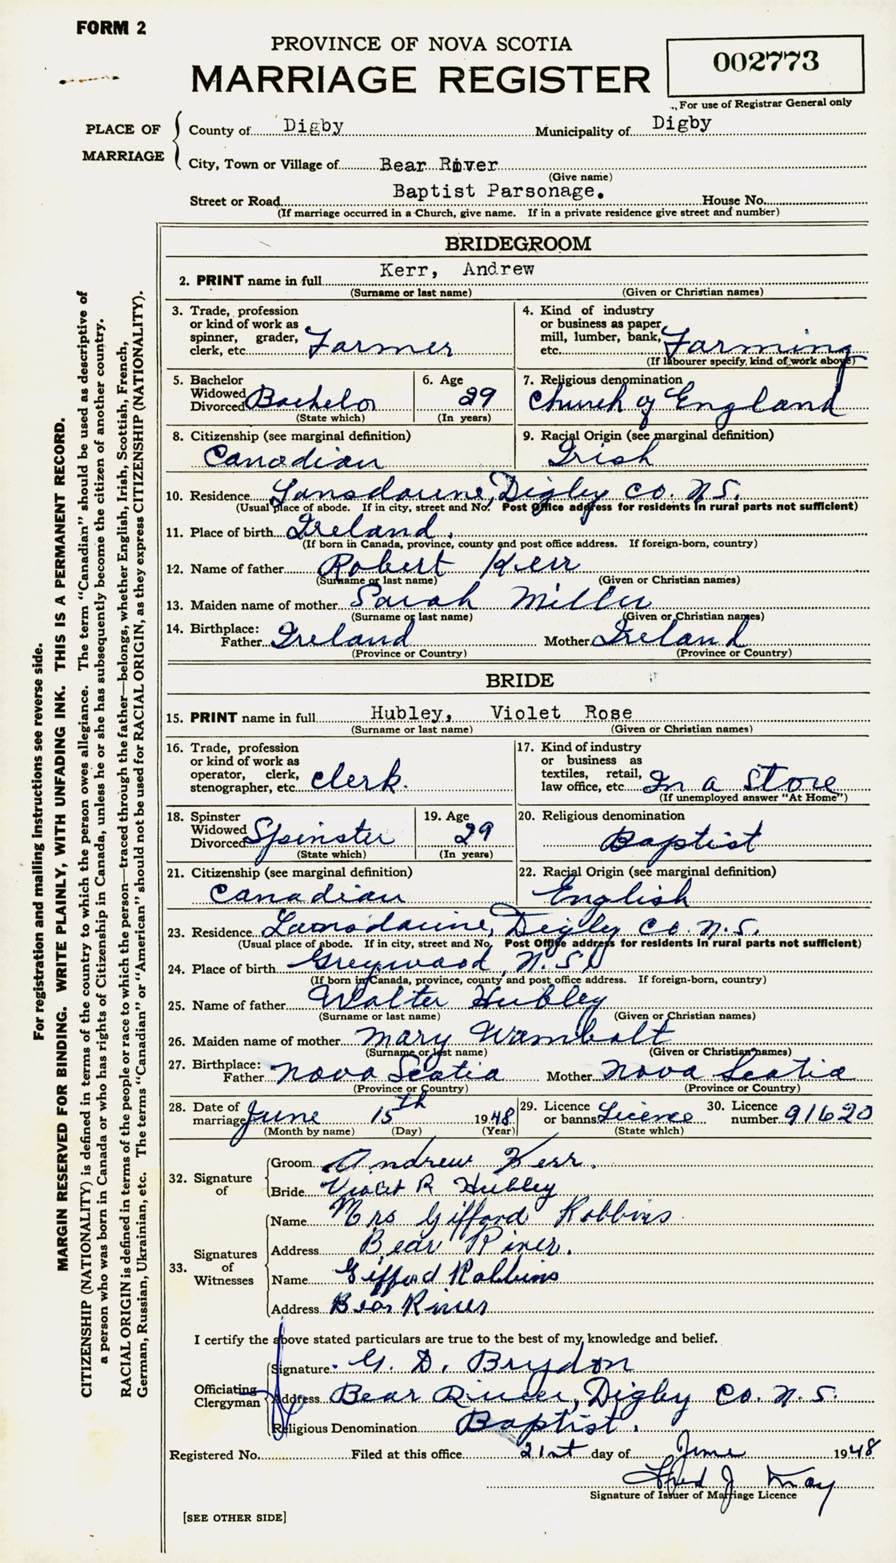 FORM 2
PROVINCE OF NOVA SCOTIA
MARRIAGE REGISTER
002773
For use of Registrar General only
PLACE OF MARRIAGE
County of Digby Municipality of Digby
City, Town or Village of Bear River
(Give name)
Street or Road Baptist Parsonage. House No.
(If marriage occurred in a Church, give name. If in a private residence give street and number)
BRIDEGROOM
2. PRINT name in full Kerr, Andrew
(Surname or last name) (Given or Christian names)
3. Trade, profession or kind of work as spinner, grader, clerk, etc. Farmer
4. Kind of industry or business as paper mill, lumber, bank, etc. Farming
(If labourer specify kind of work above)
5. Bachelor Widowed Divorced Bachelor
(State which)
6. Age 29
(In years)
7. Religious denomination
Church of England
8. Citizenship (see marginal definition)
Canadian
9. Racial Origin (see marginal definition)
Irish
10. Residence Lansdowne, Digby Co. N.S.
(Usual place of abode. If in city, street and No. Post Office address for residents in rural parts not sufficient)
11. Place of birth Ireland.
(If born in Canada, province, county and post office address. If foreign-born, country)
12. Name of father Robert Kerr
(Surname or last name) (Given or Christian names)
13. Maiden name of mother Sarah Miller
(Surname or last name) (Given or Christian names)
14. Birthplace:
Father Ireland Mother Ireland
(Province or Country) (Province or Country)
BRIDE
15. PRINT name in full Hubley, Violet Rose
(Surname or last name) (Given or Christian names)
16. Trade, profession or kind of work as operator, clerk, stenographer, etc. Clerk.
17. Kind of industry or business as textiles, retail, law office, etc. In a Store
(If unemployed answer "At Home")
18. Spinster Widowed Divorced Spinster
(State which)
19. Age 29
(In years)
20. Religious denomination
Baptist
21. Citizenship (see marginal definition)
Canadian
22. Racial Origin (see marginal definition)
English
23. Residence Lansdowne, Digby Co. N.S.
(Usual place of abode. If in city, street and No. Post Office address for residents in rural parts not sufficient)
24. Place of birth Greywood, N.S.
(If born in Canada, province, county and post office address. If foreign-born, country)
25. Name of father Walter Hubley
(Surname or last name) (Given or Christian names)
26. Maiden name of mother Mary Wambolt
(Surname or last name) (Given or Christian names)
27. Birthplace:
Father Nova Scotia Mother Nova Scotia
(Province or Country) (Province or Country)
28. Date of marriage June 15th 1948
(Month by name) (Day) (Year)
29. Licence or banns Licence
(State which)
30. Licence number 91620
32. Signature of
Groom Andrew Kerr.
Bride Violet R Hubley
33. Signatures of Witnesses
Name Mrs Gifford Robbins
Address Bear River.
Name Gifford Robbins
Address Bear River
I certify the above stated particulars are true to the best of my knowledge and belief.
Officiating Clergyman
Signature G. D. Brydon
Address Bear River, Digby Co. N.S.
Religious Denomination Baptist.
Registered No. Filed at this office 21st day of June 1948
Signature of Issuer of Marriage Licence
[SEE OTHER SIDE]
For registration and mailing instructions see reverse side.
MARGIN RESERVED FOR BINDING. WRITE PLAINLY, WITH UNFADING INK. THIS IS A PERMANENT RECORD.
CITIZENSHIP (NATIONALITY) is defined in terms of the country to which the person owes allegiance. The term "Canadian" should be used as descriptive of
a person who was born in Canada or who has rights of Citizenship in Canada, unless he or she has subsequently become the citizen of another country.
RACIAL ORIGIN is defined in terms of the people or race to which the person—traced through the father—belongs, whether English, Irish, Scottish, French,
German, Russian, Ukrainian, etc. The terms "Canadian" or "American" should not be used for RACIAL ORIGIN, as they express CITIZENSHIP (NATIONALITY).